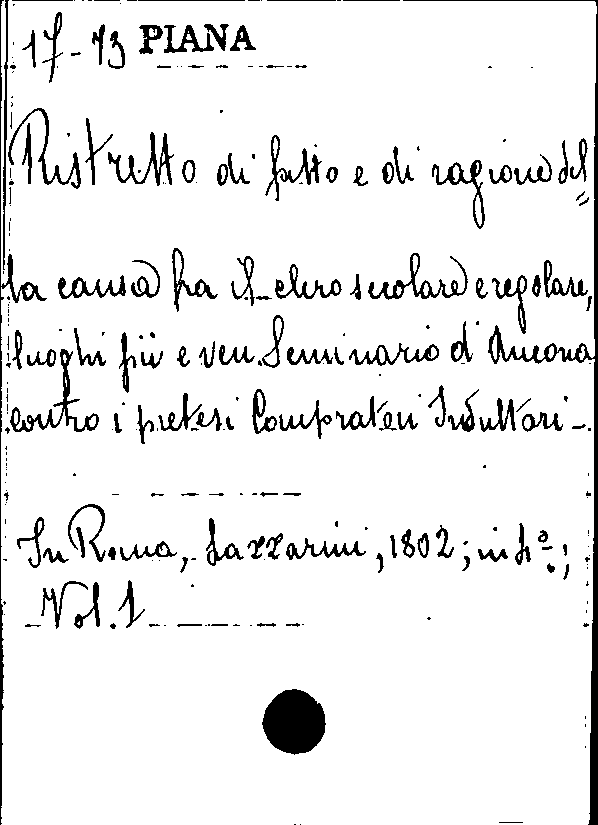 17-73 PIANA
Ristretto di fatto e di ragione del=
la causa fra il clero secolare e regolare,
luoghi pii e ven. Seminario d'Ancona
contro i pretesi Compratori Indultari -
In Roma, Lazzarini, 1802; in 4º.;
Vol. 1